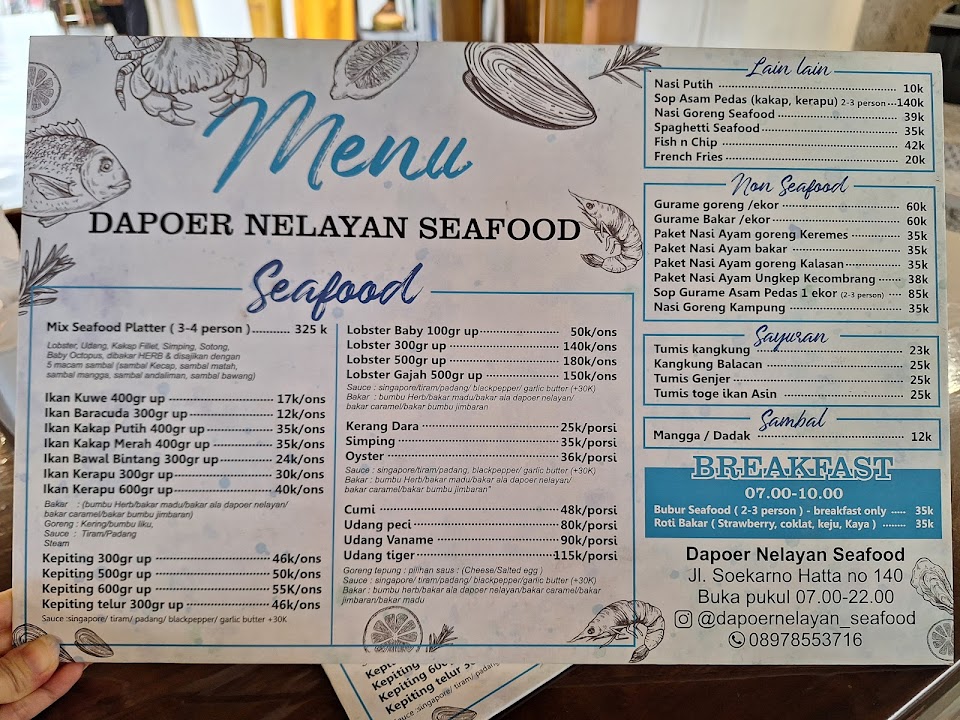 Menu
DAPOER NELAYAN SEAFOOD
Seafood
Mix Seafood Platter ( 3-4 person ) 325 k
Lobster, Udang, Kakap Fillet, Simping, Sotong,
Baby Octopus, dibakar HERB & disajikan dengan
5 macam sambal (sambal Kecap, sambal matah,
sambal mangga, sambal andaliman, sambal bawang)
Ikan Kuwe 400gr up 17k/ons
Ikan Baracuda 300gr up 12k/ons
Ikan Kakap Putih 400gr up 35k/ons
Ikan Kakap Merah 400gr up 35k/ons
Ikan Bawal Bintang 300gr up 24k/ons
Ikan Kerapu 300gr up 30k/ons
Ikan Kerapu 600gr up 40k/ons
Bakar : (bumbu Herb/bakar madu/bakar ala dapoer nelayan/
bakar caramel/bakar bumbu jimbaran)
Goreng : Kering/bumbu liku,
Sauce : Tiram/Padang
Steam
Kepiting 300gr up 46k/ons
Kepiting 500gr up 50k/ons
Kepiting 600gr up 55K/ons
Kepiting telur 300gr up 46k/ons
Sauce :singapore/ tiram/ padang/ blackpepper/ garlic butter +30K
Lobster Baby 100gr up 50k/ons
Lobster 300gr up 140k/ons
Lobster 500gr up 180k/ons
Lobster Gajah 500gr up 150k/ons
Sauce : singapore/tiram/padang/ blackpepper/ garlic butter (+30K)
Bakar : bumbu Herb/bakar madu/bakar ala dapoer nelayan/
bakar caramel/bakar bumbu jimbaran
Kerang Dara 25k/porsi
Simping 35k/porsi
Oyster 36k/porsi
Sauce : singapore/tiram/padang, blackpepper/ garlic butter (+30K)
Bakar : bumbu Herb/bakar madu/bakar ala dapoer nelayan/
bakar caramel/bakar bumbu jimbaran"
Cumi 48k/porsi
Udang peci 80k/porsi
Udang Vaname 90k/porsi
Udang tiger 115k/porsi
Goreng tepung : pilihan saus : (Cheese/Salted egg )
Sauce : singapore/ tiram/ padang/ blackpepper/garlic butter (+30K)
Bakar : bumbu herb/bakar ala dapoer nelayan/bakar caramel/bakar bumbu
jimbaran/bakar madu
Lain lain
Nasi Putih 10k
Sop Asam Pedas (kakap, kerapu) 2-3 person 140k
Nasi Goreng Seafood 39k
Spaghetti Seafood 35k
Fish n Chip 42k
French Fries 20k
Non Seafood
Gurame goreng /ekor 60k
Gurame Bakar /ekor 60k
Paket Nasi Ayam goreng Keremes 35k
Paket Nasi Ayam bakar 35k
Paket Nasi Ayam goreng Kalasan 35k
Paket Nasi Ayam Ungkep Kecombrang 38k
Sop Gurame Asam Pedas 1 ekor (2-3 person) 85k
Nasi Goreng Kampung 35k
Sayuran
Tumis kangkung 23k
Kangkung Balacan 25k
Tumis Genjer 25k
Tumis toge ikan Asin 25k
Sambal
Mangga / Dadak 12k
BREAKFAST
07.00-10.00
Bubur Seafood ( 2-3 person ) - breakfast only 35k
Roti Bakar ( Strawberry, coklat, keju, Kaya ) 35k
Dapoer Nelayan Seafood
Jl. Soekarno Hatta no 140
Buka pukul 07.00-22.00
@dapoernelayan_seafood
08978553716
Kepiting 600
Kepiting telur
Sauce :singapore/ tiram/ padang